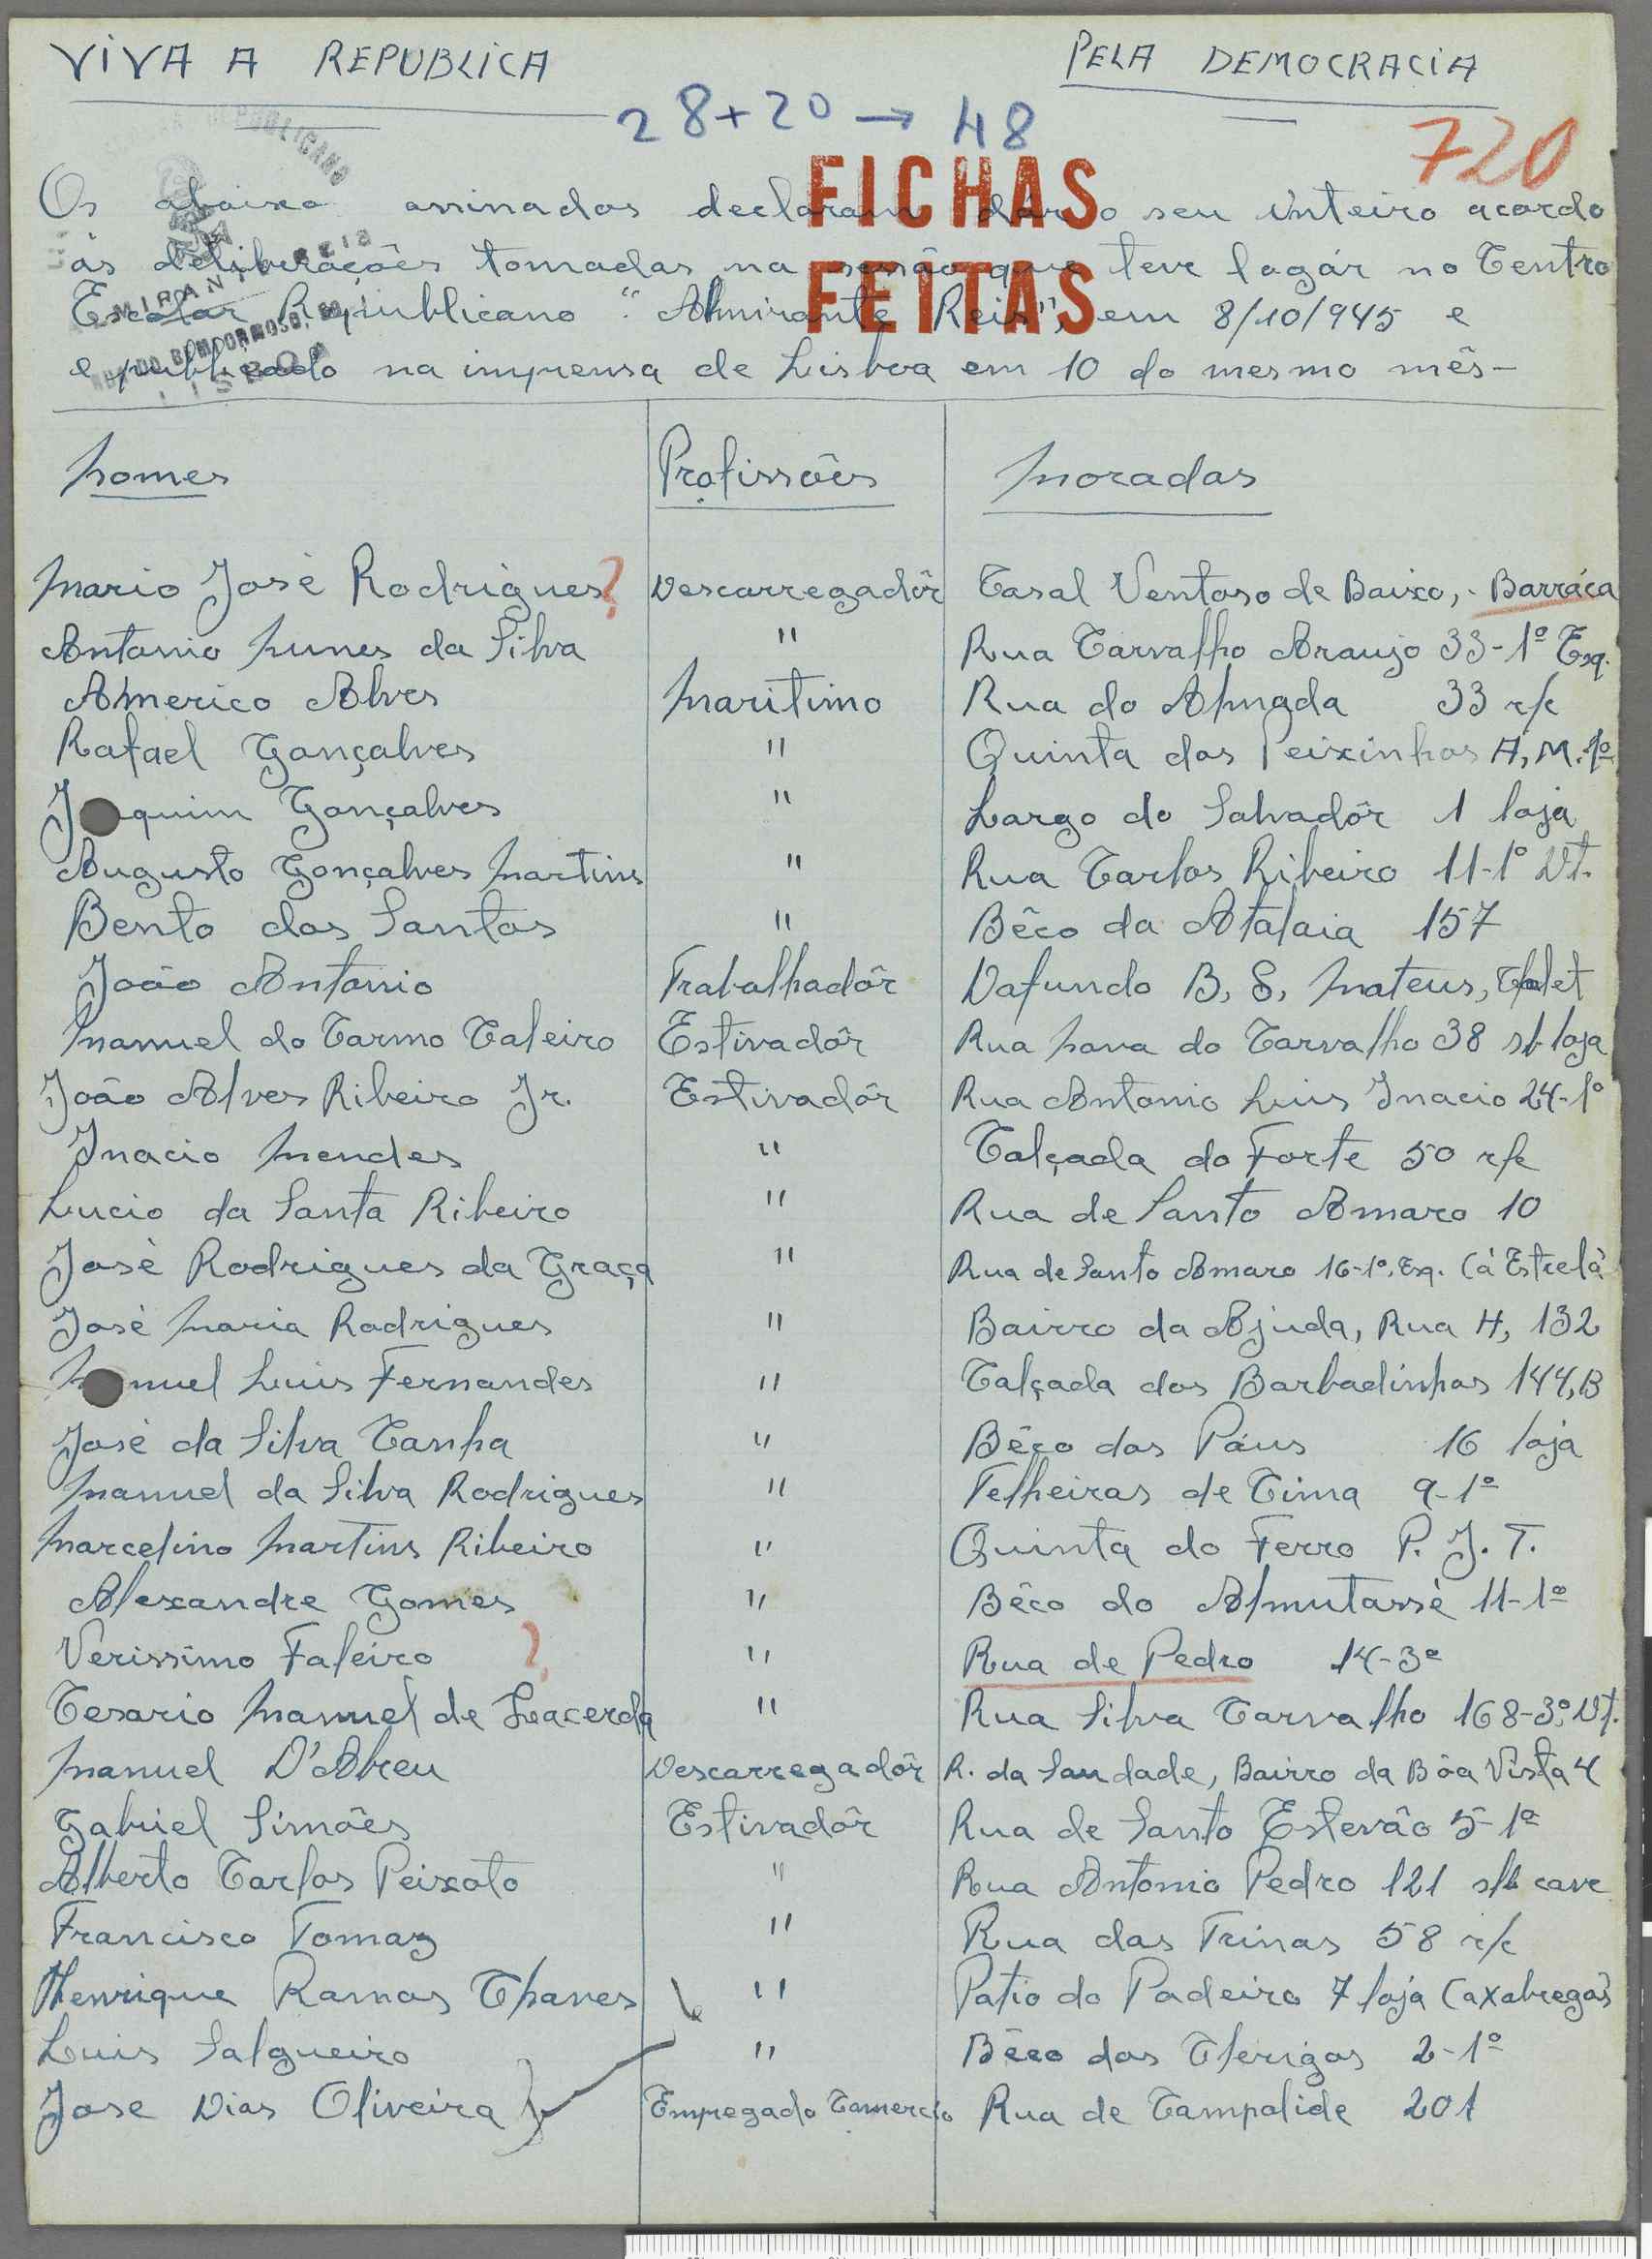 VIVA A REPUBLICA PELA DEMOCRACIA
28+20 → 48
720
FICHAS
FEITAS
Os abaixo assinados declaram dar o seu inteiro acordo
ás deliberações tomadas na sessão que teve logár no Centro
Escolar Republicano "Almirante Reis", em 8/10/945 e
e publicado na imprensa de Lisboa em 10 do mesmo mês-
Nomes Profissões Moradas
Mario José Rodrigues ? Descarregadôr Casal Ventoso de Baixo, - Barráca
Antonio Nunes da Silva " Rua Carvalho Araujo 33-1º Esq.
Americo Alves Maritimo Rua do Almada 33 r/c
Rafael Gonçalves " Quinta dos Peixinhos A, M. 1º
Joaquim Gonçalves " Largo do Salvadôr 1 loja
Augusto Gonçalves Martins " Rua Carlos Ribeiro 11-1º Dt.
Bento dos Santos " Bêco da Atalaia 157
João Antonio Trabalhadôr Dafundo B, S, Mateus, Chalet
Manuel do Carmo Caleiro Estivadôr Rua Nova do Carvalho 38 s/loja
João Alves Ribeiro Jr. Estivadôr Rua Antonio Luis Inacio 24-1º
Inacio Mendes " Calçada do Forte 50 r/c
Lucio da Santa Ribeiro " Rua de Santo Amaro 10
José Rodrigues da Graça " Rua de Santo Amaro 16-1º, Esq. (á Estrela)
José Maria Rodrigues " Bairro da Ajuda, Rua H, 132
Manuel Luis Fernandes " Calçada dos Barbadinhos 144, B
José da Silva Canha " Bêco dos Páus 16 loja
Manuel da Silva Rodrigues " Telheiras de Cima 9-1º
Marcelino Martins Ribeiro " Quinta do Ferro P. J. T.
Alexandre Gomes " Bêco do Almutassé 11-1º
Verissimo Faleiro ? " Rua de Pedro 14-3º
Cesario Manuel de Lacerda " Rua Silva Carvalho 168-3º, Dt.
Manuel D'Abreu Descarregadôr R. da Saudade, Bairro da Bôa Vista 4
Gabriel Simões Estivadôr Rua de Santo Estevão 5-1º
Alberto Carlos Peixoto " Rua Antonio Pedro 121 s/b cave
Francisco Tomaz " Rua das Trinas 58 r/c
Henrique Ramos Chaves " Patio do Padeiro 7 loja (a Xabregas)
Luis Salgueiro " Bêco dos Clerigos 2-1º
Jose Dias Oliveira Empregado Comercio Rua de Campolide 201